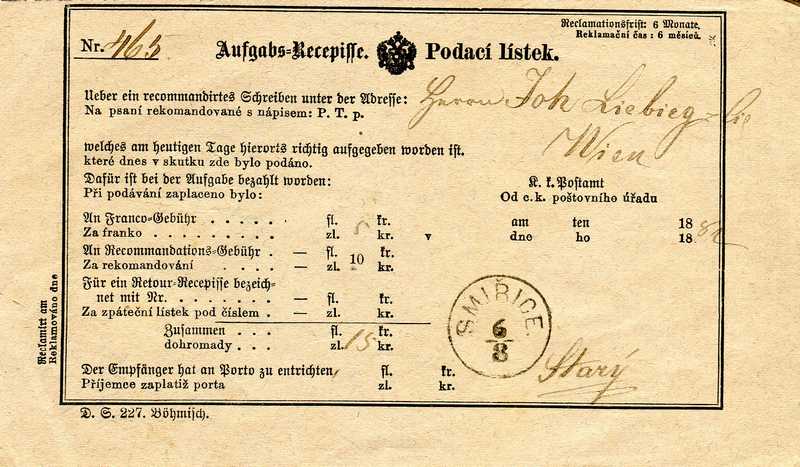 Reclamationsfrist: 6 Monate.
Reklamační čas: 6 měsíců.
Nr. 465 Aufgabs-Recepisse. Podací lístek.
Ueber ein recommandirtes Schreiben unter der Adresse: Herrn Joh Liebieg
Na psaní rekomandované s nápisem: P. T. p.
Wien
welches am heutigen Tage hierorts richtig aufgegeben worden ist.
které dnes v skutku zde bylo podáno.
Dafür ist bei der Aufgabe bezahlt worden: K. k. Postamt
Při podávání zaplaceno bylo: Od c. k. poštovního úřadu
An Franco-Gebühr . . . . . . fl. 5 kr. am ten 18
Za franko . . . . . . . . . zl. kr. v dne ho 18 82
An Recommandations-Gebühr . — fl. 10 kr.
Za rekomandování . . . . . — zl. kr.
Für ein Retour-Recepisse bezeich-
net mit Nr. . . . . . . . . — fl. kr.
Za zpáteční lístek pod číslem . — zl. kr.
Zusammen . . . fl. kr.
dohromady . . . zl. 15 kr.
SMIŘICE.
6/8
Starý
Der Empfänger hat an Porto zu entrichten fl. kr.
Příjemce zaplatiž porta zl. kr.
Reclamirt am
Reklamováno dne
D. S. 227. Böhmisch.